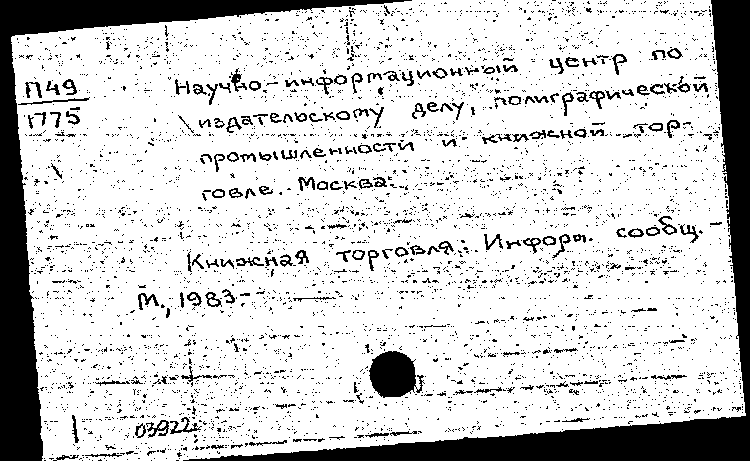 П49
1775
Научно-информационный центр по
издательскому делу, полиграфической
промышленности и книжной тор-
говле. Москва.
Книжная торговля: Информ. сообщ. -
М., 1983.-
03922